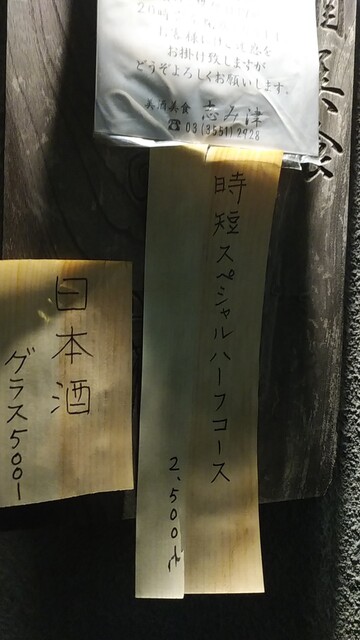 お客様にはご迷惑を
お掛け致しますが
どうぞよろしくお願いします。
美酒美食 志み津
☎ 03(3551)2928
時短スペシャルハーフコース
2,500円
日本酒
グラス500ー
食